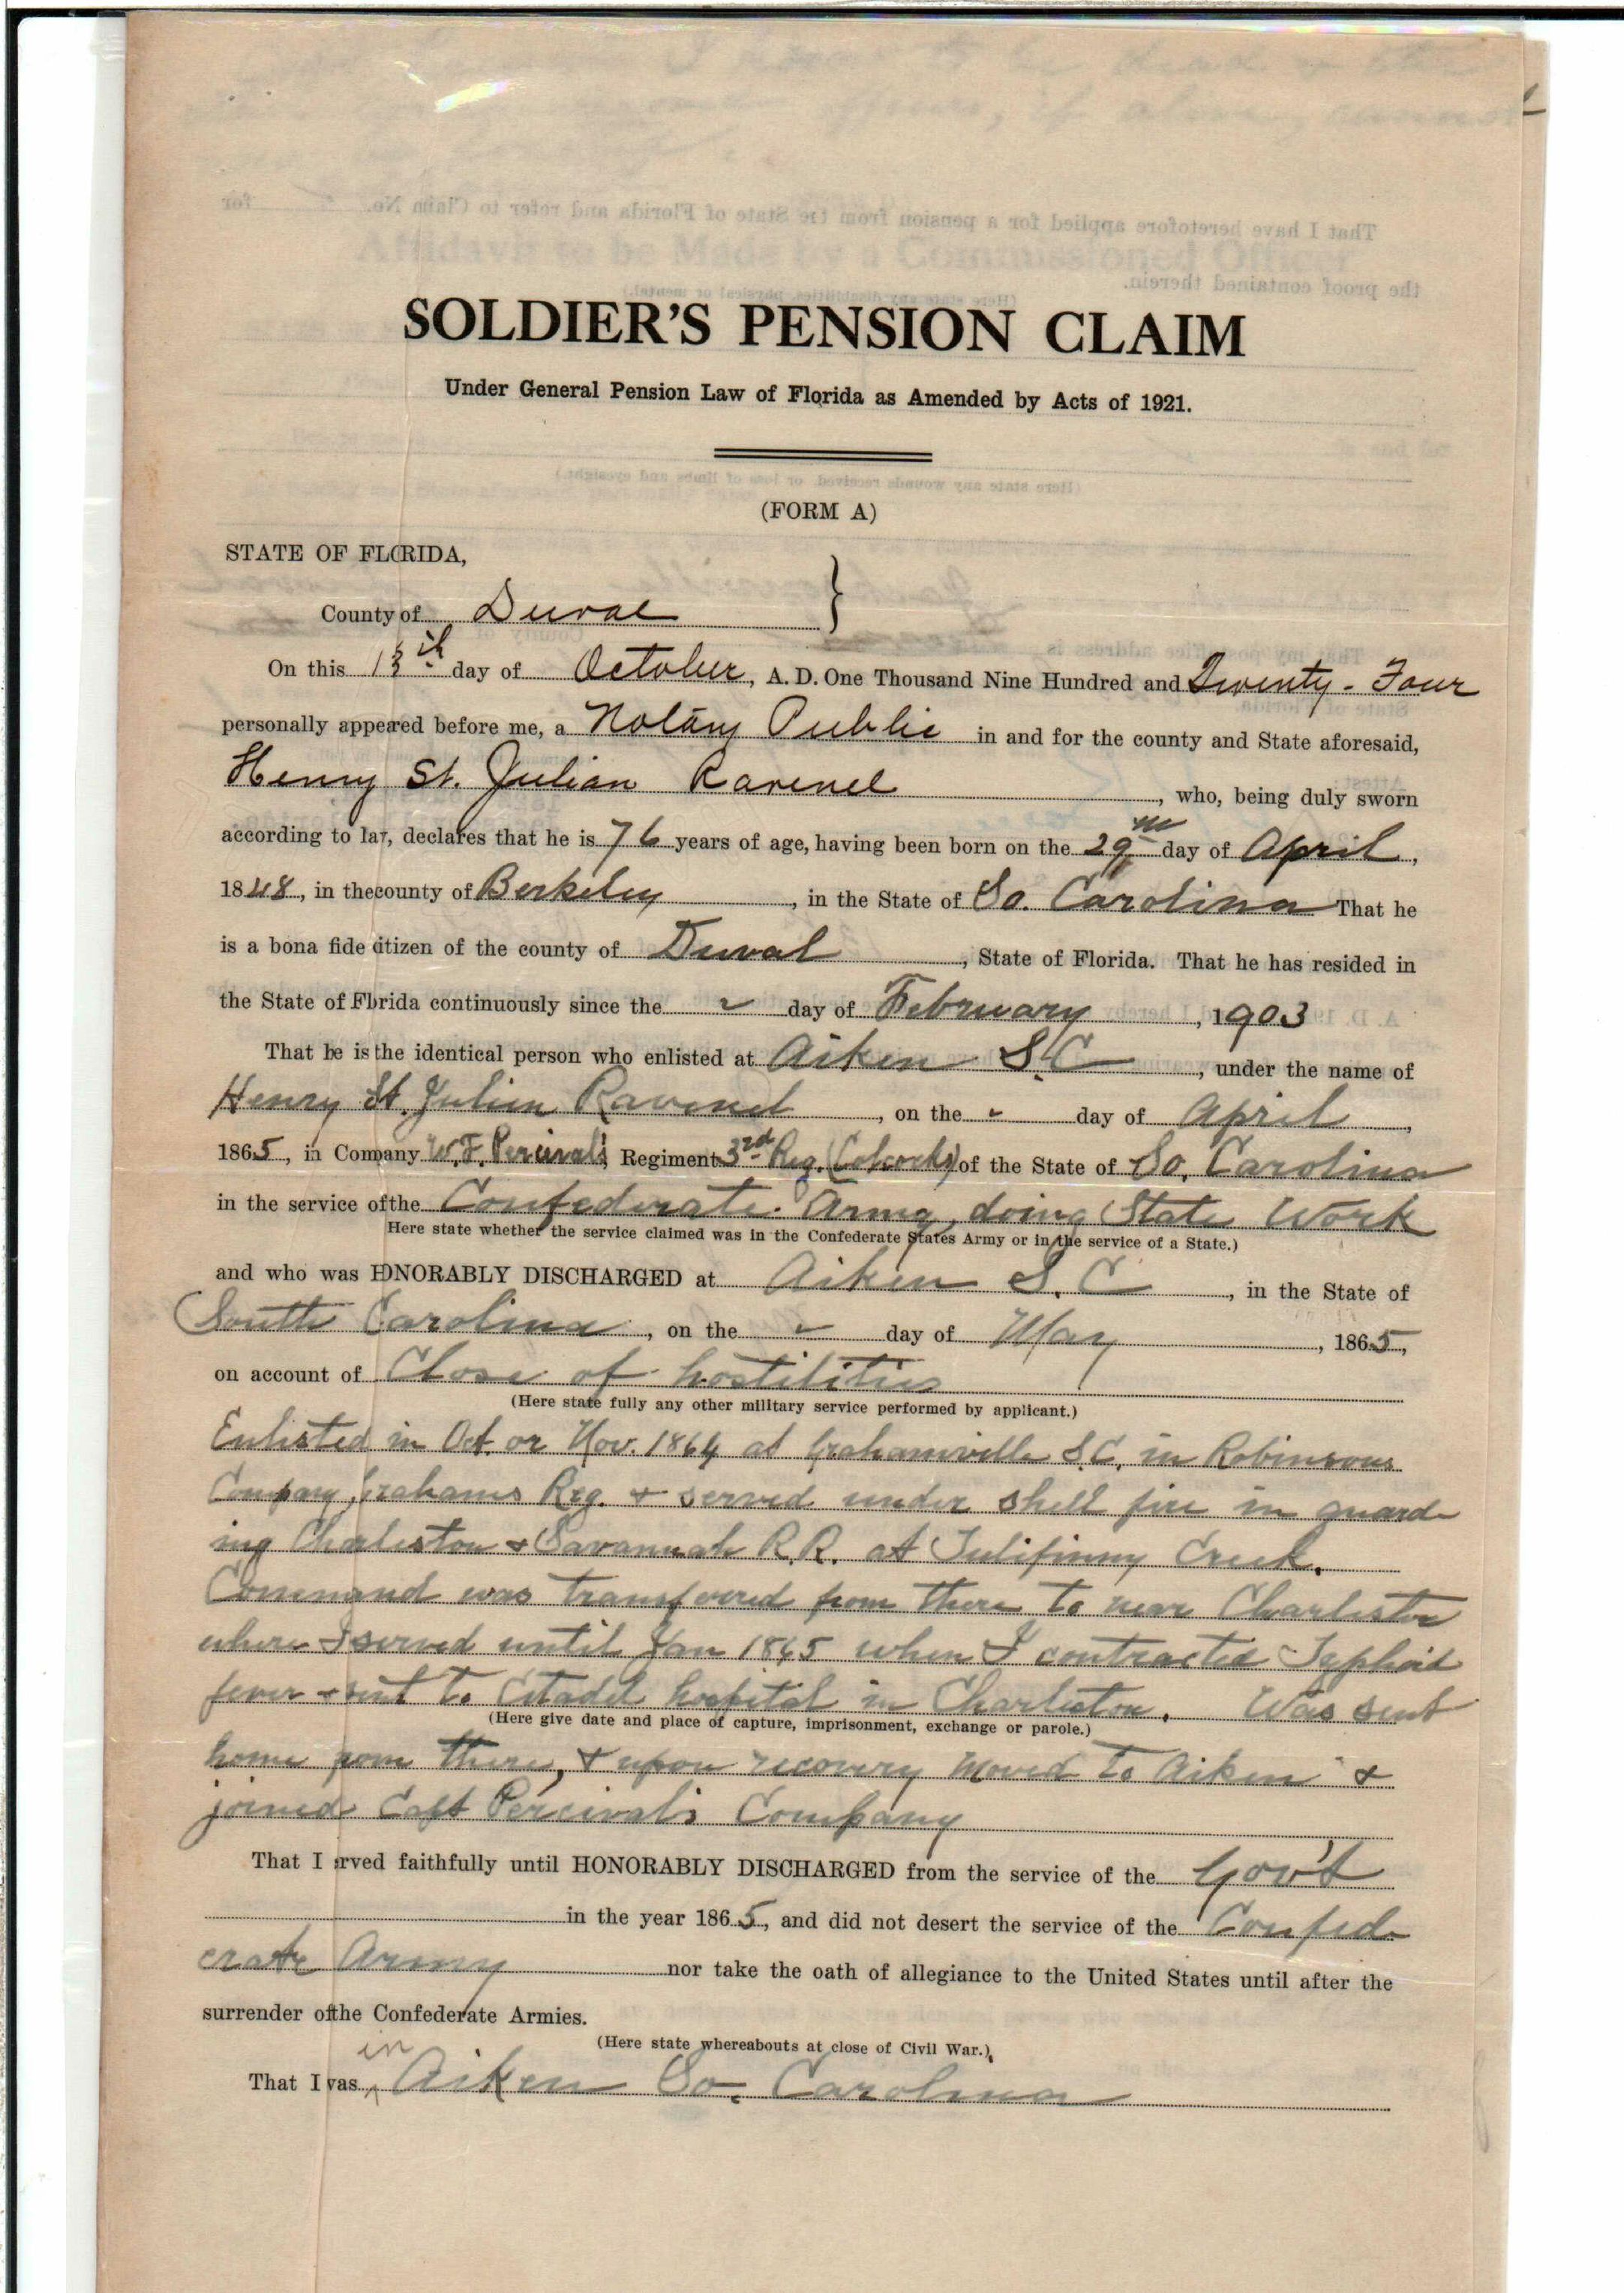 SOLDIER'S PENSION CLAIM
Under General Pension Law of Florida as Amended by Acts of 1921.
(FORM A)
STATE OF FLORIDA,
County of Duval }
On this 13th day of October, A. D. One Thousand Nine Hundred and Twenty-Four
personally appeared before me, a Notary Public in and for the county and State aforesaid,
Henry St. Julian Ravenel, who, being duly sworn
according to law, declares that he is 76 years of age, having been born on the 29th day of April,
1848, in the county of Berkeley, in the State of So. Carolina That he
is a bona fide citizen of the county of Duval, State of Florida. That he has resided in
the State of Florida continuously since the - day of February, 1903
That he is the identical person who enlisted at Aiken S.C, under the name of
Henry St. Julien Ravenel, on the - day of April,
1865, in Company W.F. Percival's, Regiment 3rd Reg. (Colcocks) of the State of So. Carolina
in the service of the Confederate Army, doing State Work
Here state whether the service claimed was in the Confederate States Army or in the service of a State.)
and who was HONORABLY DISCHARGED at Aiken S.C, in the State of
South Carolina, on the - day of May, 1865,
on account of Close of hostilities
(Here state fully any other military service performed by applicant.)
Enlisted in Oct. or Nov. 1864 at Grahamville S.C. in Robinsons
Company, Grahams Reg. + served under shell fire in guard-
ing Charleston + Savannah R.R. at Tulifinny Creek.
Command was transfered from there to near Charleston
where I served until Jan 1865 when I contracted Typhoid
fever + sent to Citadel hospital in Charleston. Was sent
(Here give date and place of capture, imprisonment, exchange or parole.)
home from there, + upon recovery moved to Aiken +
joined Capt Percival's Company
That I served faithfully until HONORABLY DISCHARGED from the service of the Gov't
in the year 1865, and did not desert the service of the Confed-
erate Army nor take the oath of allegiance to the United States until after the
surrender of the Confederate Armies.
(Here state whereabouts at close of Civil War.)
That I was in Aiken So. Carolina